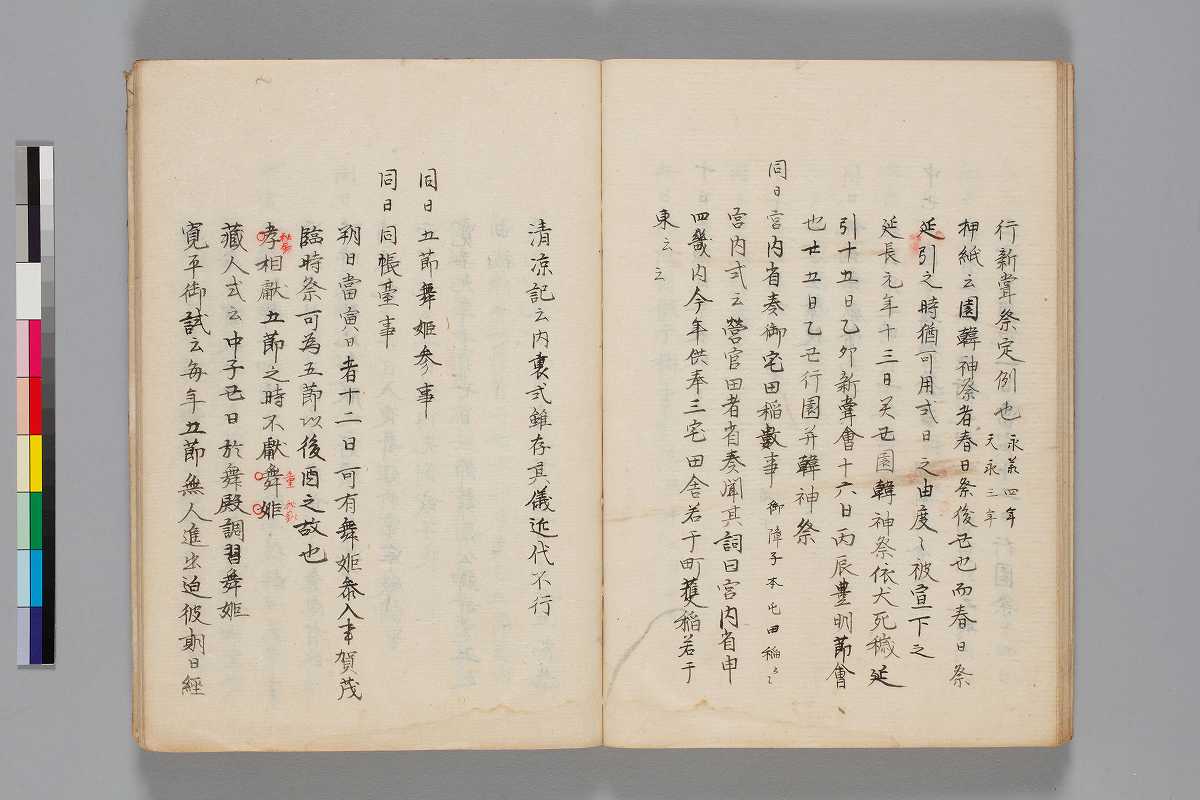 行新嘗祭定例也 永義四年
天永三年
押紙云園韓神祭者春日祭後丑也而春日祭
延引之時猶可用式日之由度〻被宣下之
延長元年十三日癸丑園韓神祭依犬死穢延
引十五日乙卯新嘗會十六日丙辰豊明節會
也廿五日乙丑行園并韓神祭
同日宮内省奏御宅田稲數事 御障子本屯田稲云〻
宮内式云營官田者省奏聞其詞曰宮内省申
四畿内今年供奉三宅田舎若干町穫稲若干
東云〻
清凉記云内裏式雖存其儀近代不行
同日五節舞姫参事
同日同帳臺事
朔日當寅日者十二日可有舞姫参入事賀茂
臨時祭可為五節以後酉之故也
孝相獻五節之時不獻舞姫
童
藏人式云中子丑日於舞殿調習舞姫
寛平御試云毎年五節無人進出迫彼期日經